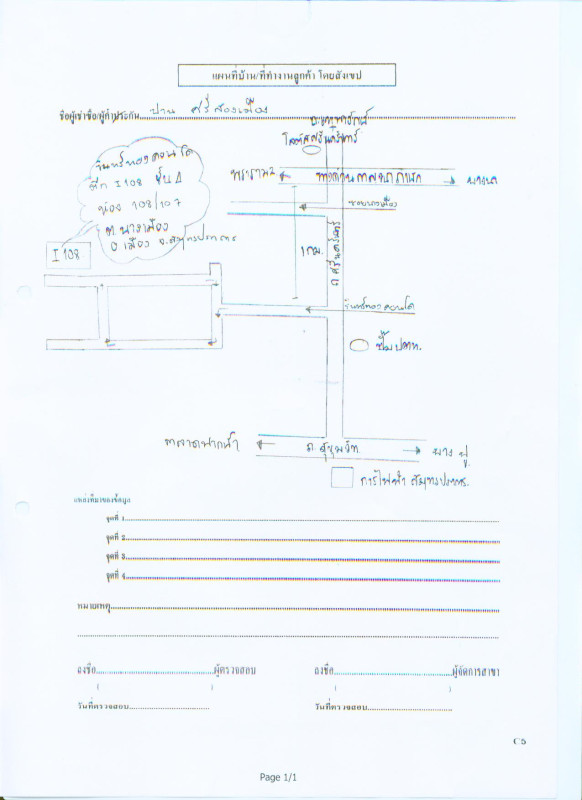 แผนที่บ้าน/ที่ทำงานลูกค้า โดยสังเขป
ชื่อผู้เช่าซื้อ/ผู้ค้ำประกัน ปาน ศรีสองเมือง
ถ.เทพารักษ์
โลตัสศรีนครินทร์
จันทร์ทองคอนโด
ตึก I 108 ชั้น 4
ห้อง 108/107
ต. บางเมือง
อ เมือง จ.สมุทรปราการ
I 108
พระราม2
ทางด่วนกาญจนาภิเษก
บางนา
ซอยบางเมือง
1 กม.
ถ ศรีนครินทร์
จันทร์ทองคอนโด
ปั๊ม ปตท.
ตลาดปากน้ำ
ถ. สุขุมวิท
บาง ปู
การไฟฟ้า สมุทรปราการ
แหล่งที่มาของข้อมูล
จุดที่ 1
จุดที่ 2
จุดที่ 3
จุดที่ 4
หมายเหตุ
ลงชื่อ ผู้ตรวจสอบ ลงชื่อ ผู้จัดการสาขา
( ) ( )
วันที่ตรวจสอบ วันที่ตรวจสอบ
C5
Page 1/1